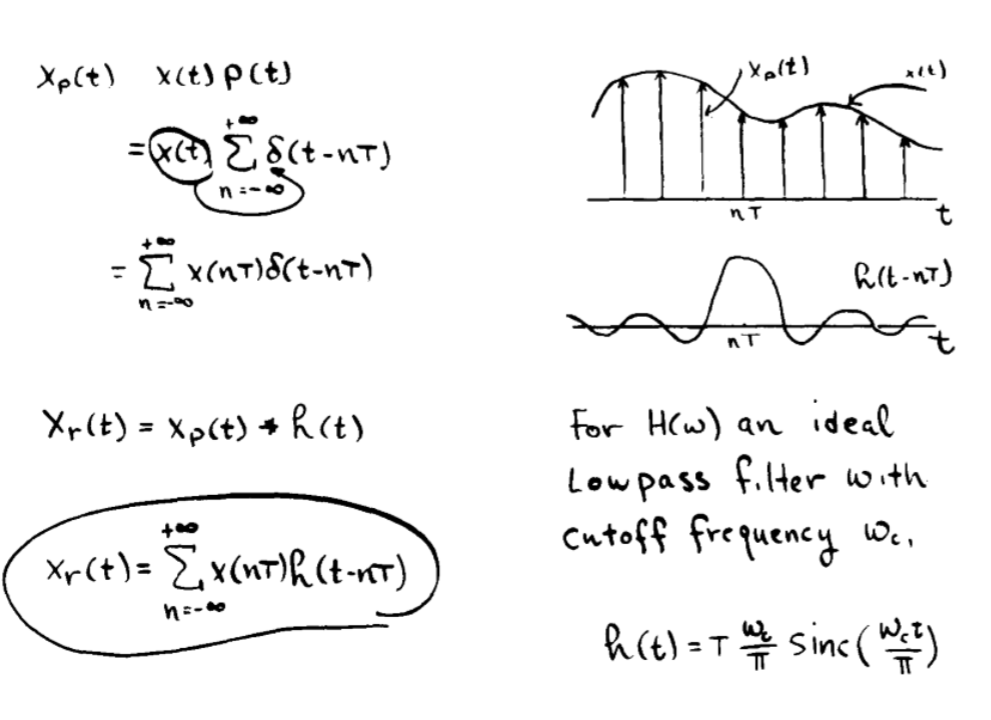 xₚ(t) x(t) p(t)
= x(t) ∑_{n=-∞}^{+∞} δ(t-nT)
= ∑_{n=-∞}^{+∞} x(nT)δ(t-nT)
xᵣ(t) = xₚ(t) * h(t)
xᵣ(t) = ∑_{n=-∞}^{+∞} x(nT)h(t-nT)
xₚ(t)
x(t)
nT
t
h(t-nT)
nT
t
For H(ω) an ideal
Lowpass filter with
cutoff frequency ω_c,
h(t) = T ω_c/π sinc(ω_c t/π)